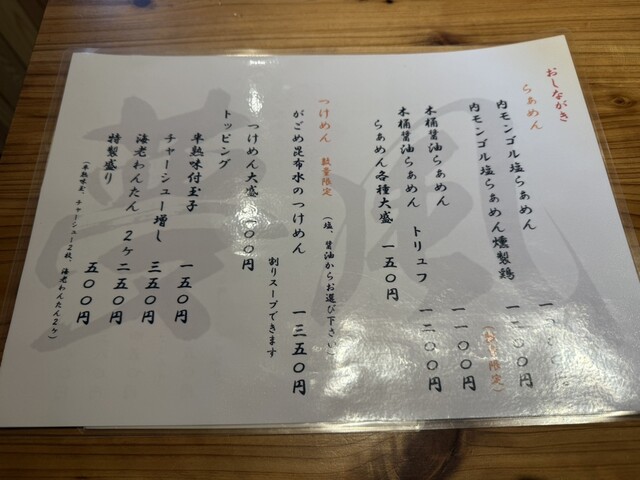 おしながき
らぁめん
内モンゴル塩らぁめん
内モンゴル塩らぁめん燻製鶏
(数量限定)
木桶醤油らぁめん 一一〇〇円
木桶醤油らぁめん トリュフ 一二〇〇円
らぁめん各種大盛 一五〇円
つけめん 数量限定 (塩、醤油からお選び下さい)
がごめ昆布水のつけめん 一三五〇円
割りスープできます
つけめん大盛 二〇〇円
トッピング
半熟味付玉子 一五〇円
チャーシュー増し 三五〇円
海老わんたん 2ヶ 二五〇円
特製盛り 五〇〇円
(半熟味玉、チャーシュー2枚、海老わんたん2ヶ)